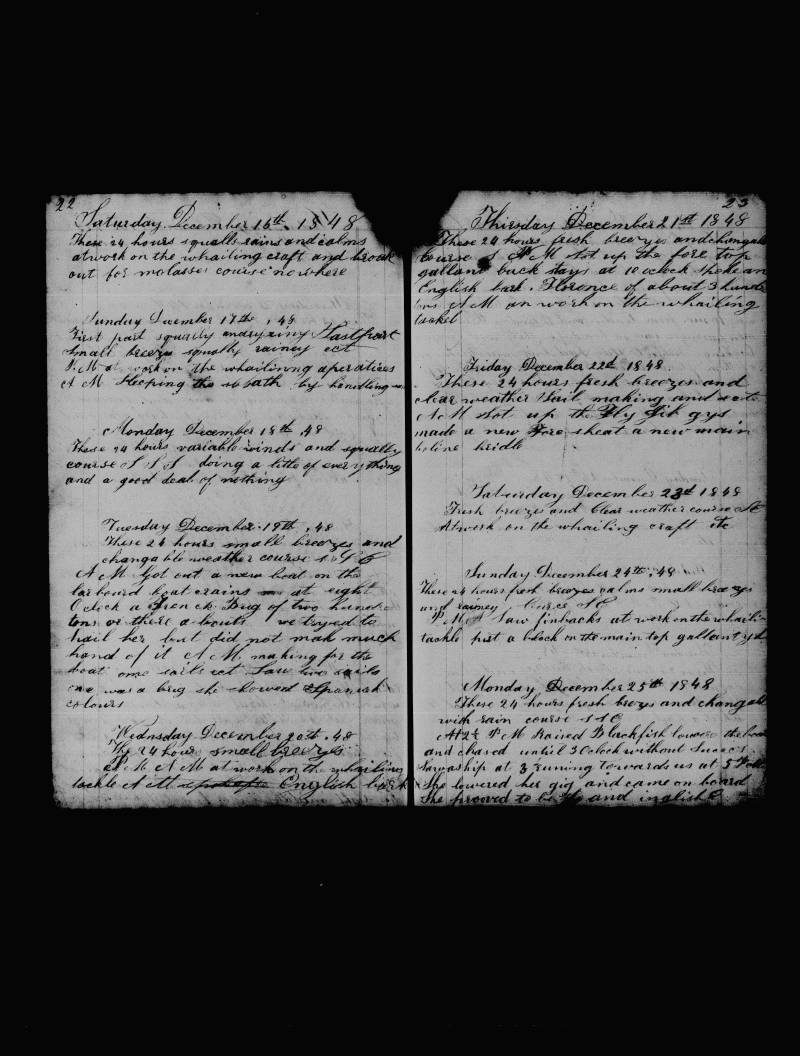 22
Saturday December 16th 1848
These 24 hours squalls rains and calms
at work on the whailing craft and broak
out for molasses course nowhere
Sunday December 17th , 48
First part squally and
small breezes squally rainey ect
P M at work on the whailining aperatires
A M Kleeping the sbath by handling
Monday December 18th , 48
These 24 hours variable winds and squally
course S S S doing a little of everything
and a good deal of nothing
Tuesday December 19th , 48
These 24 hours small breezes and
changable weather course
A M Got out a new boat on the
larbourd boat crains at eight
Oclock a French Brig of two hundre
tons or there abouts we tryed to
hail her but did not mak much
hand of it A M making for the
boat ome sails ect Saw two sails
one was a brig she showed Spanish
colours
Wednsday December 20th , 48
The 24 hours small breezes
P M A M at work on the whailing
tackle A M English bark
23
Thursday December 21st 1848
These 24 hours fresh breezes and changable
course S P M Sot up the fore top
gallant back stays at 10 oclock spoke an
English bark Florence of about 3 hundre
tons A M at work on the whailing
Friday December 22d 1848
These 24 hours fresh breezes and
clear weather Sail making and ect
A M Sot up the Fly Jib gys
made a new Fore sheat a new main
boline bridle
Saturday December 23d 1848
Fresh breezes and clear weather course SE
At work on the whailing craft etc
Sunday December 24th , 48
These 24 hours fresh breezes calms small breezes
and rainey Course SE
P M Saw finbacks at work on the whailin
tackle put a block on the main top gallant yd
Monday December 25th 1848
These 24 hours fresh brezes and changable
with rain course S S E
At 2½ P M Raised Blackfish lowered the boats
and chased until 3 Oclock without Success
Saw a ship at 3 runing towards us at 5
She lowered her gig and came on board
She prooved to be and inglish